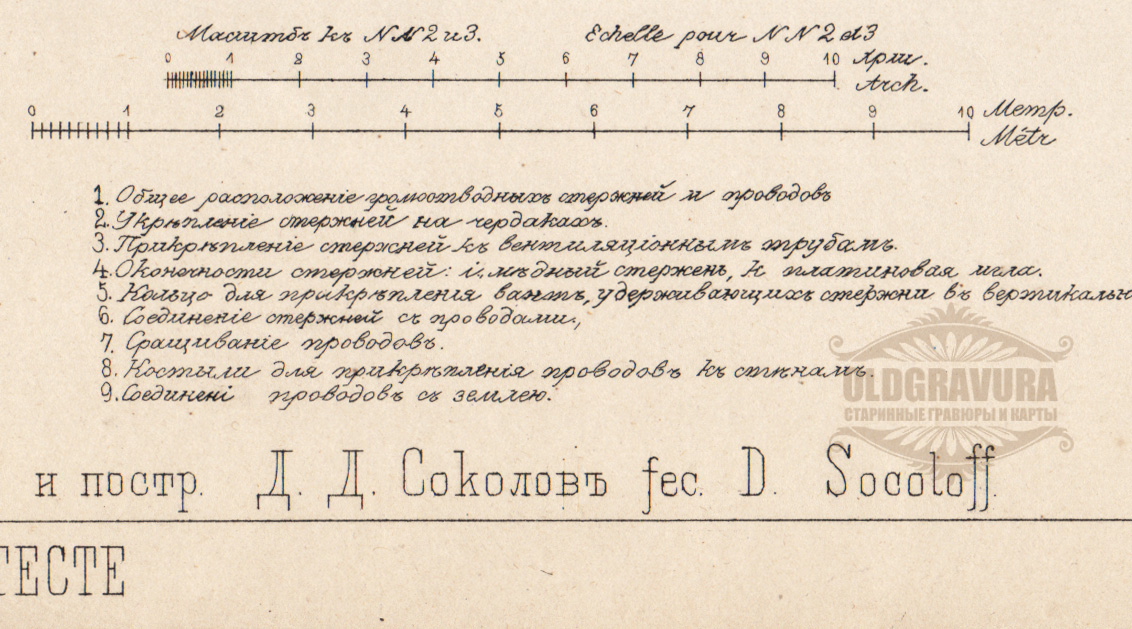 Масштбъ къ NN 2 и 3. Echelle pour NN 2 et 3
0 1 2 3 4 5 6 7 8 9 10 Арш.
Arch.
0 1 2 3 4 5 6 7 8 9 10 Метр.
Métr
1. Общее расположеніе громоотводныхъ стержней и проводовъ
2. Укрѣпленіе стержней на чердакахъ.
3. Прикрѣпленіе стержней къ вентиляціоннымъ трубамъ.
4. Оконечности стержней: i, мѣдный стержень, k платиновая игла.
5. Кольцо для прикрѣпленія вантъ, удерживающихъ стержни въ вертикальн
6. Соединеніе стержней съ проводами.,
7. Сращиваніе проводовъ.
8. Костыли для прикрѣпленія проводовъ къ стѣнамъ.
9. Соединені проводовъ съ землею.
OLDGRAVURA
СТАРИННЫЕ ГРАВЮРЫ И КАРТЫ
и постр. Д. Д. Соколовъ fec. D. Socoloff.
ТЕСТЕ